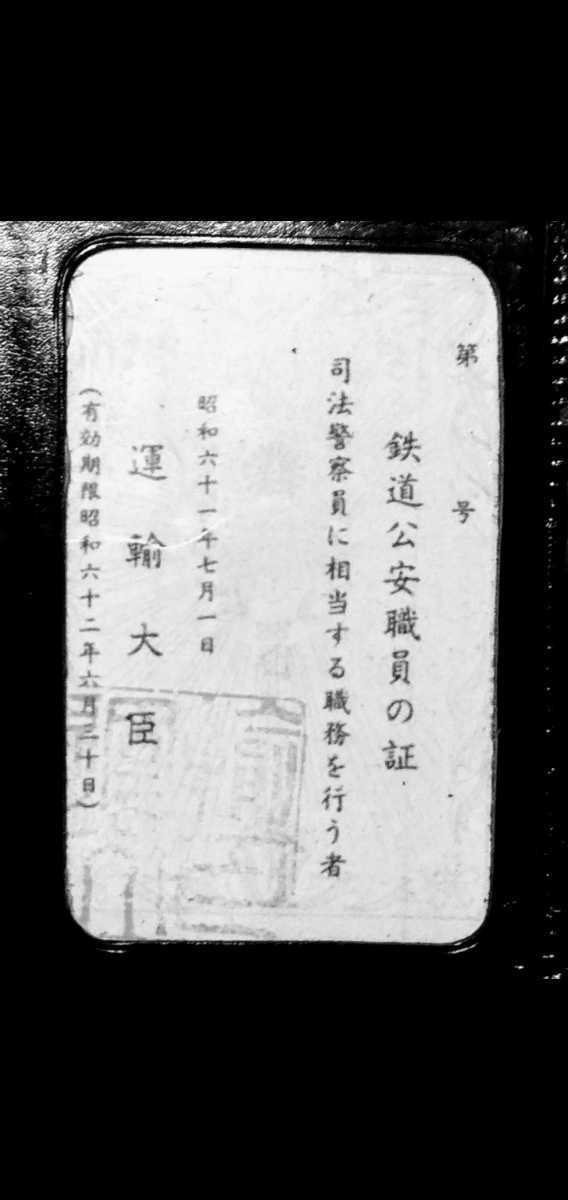 第　号
鉄道公安職員の証
司法警察員に相当する職務を行う者
昭和六十一年七月一日
運輸大臣
（有効期限昭和六十二年六月三十日）